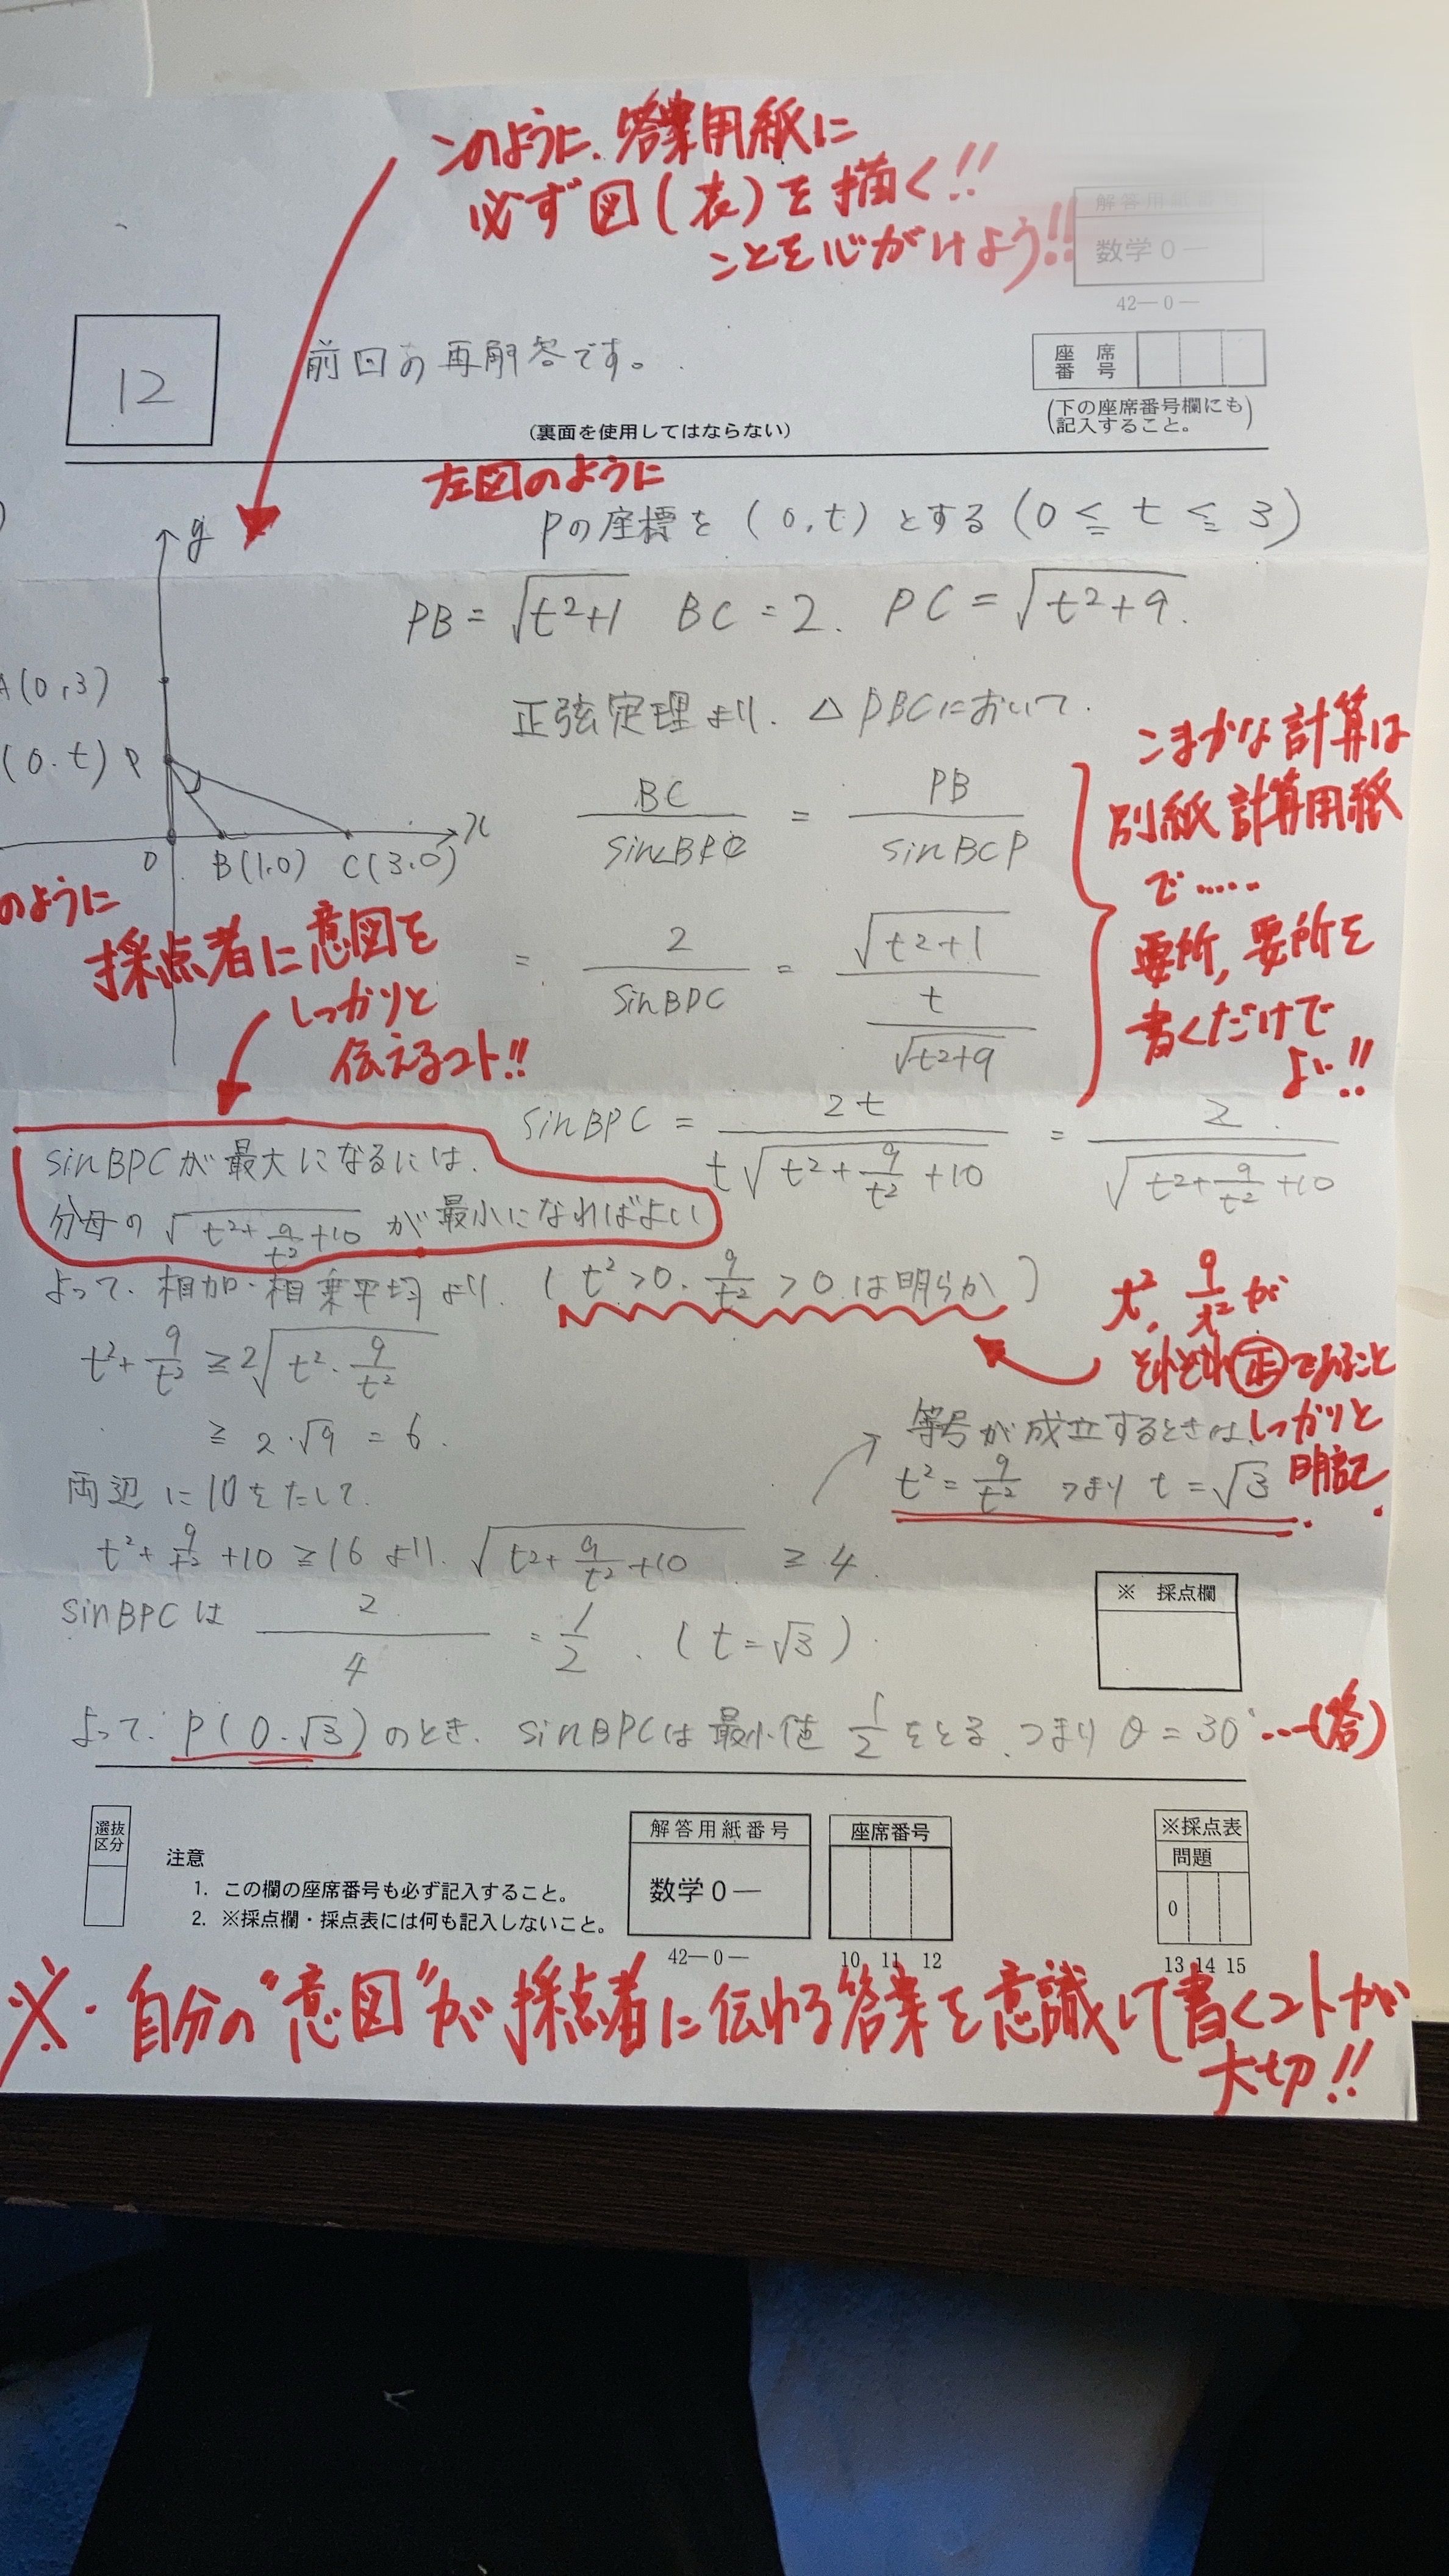 このように、答案用紙に
必ず図(表)を描く!!
ことを心がけよう!!
数学0―
42―0―
12
前回の再解答です。
座席番号
(裏面を使用してはならない)
(下の座席番号欄にも
記入すること。)
左図のように
Pの座標を (0,t) とする (0 ≦ t ≦ 3)
y
PB = √(t²+1) BC = 2. PC = √(t²+9).
A(0,3)
正弦定理より. △PBCにおいて.
(0.t) P
BC/sin∠BPC = PB/sinBCP
x
O B(1,0) C(3,0)
こまかな計算は
別紙計算用紙
で……
要所,要所を
書くだけで
よい!!
のように
採点者に意図を
しっかりと
伝えるコト!!
= 2/sinBPC = √(t²+1)/(t/√(t²+9))
sinBPC = 2t/(t√(t²+9/t²+10)) = 2/√(t²+9/t²+10)
sinBPCが最大になるには.
分母の √(t²+9/t²+10) が最小になればよい
よって. 相加・相乗平均より. (t²>0. 9/t²>0.は明らか)
t², 9/t²が
それぞれ正であること
しっかりと
明記.
t²+9/t² ≧ 2√(t²・9/t²)
≧ 2・√9 = 6.
等号が成立するときは.
t² = 9/t² つまり t = √3
両辺に10をたして.
t²+9/t²+10 ≧ 16 より. √(t²+9/t²+10) ≧ 4.
sinBPCは 2/4 = 1/2. (t=√3).
※ 採点欄
よって. P(0.√3)のとき. sinBPCは最小値 1/2 をとる. つまり θ = 30° …(答)
選抜区分
注意
1. この欄の座席番号も必ず記入すること。
2. ※採点欄・採点表には何も記入しないこと。
解答用紙番号
数学0―
42―0―
座席番号
10 11 12
※採点表
問題
0
13 14 15
※・自分の“意図”が採点者に伝わる答案を意識して書くコトが
大切!!